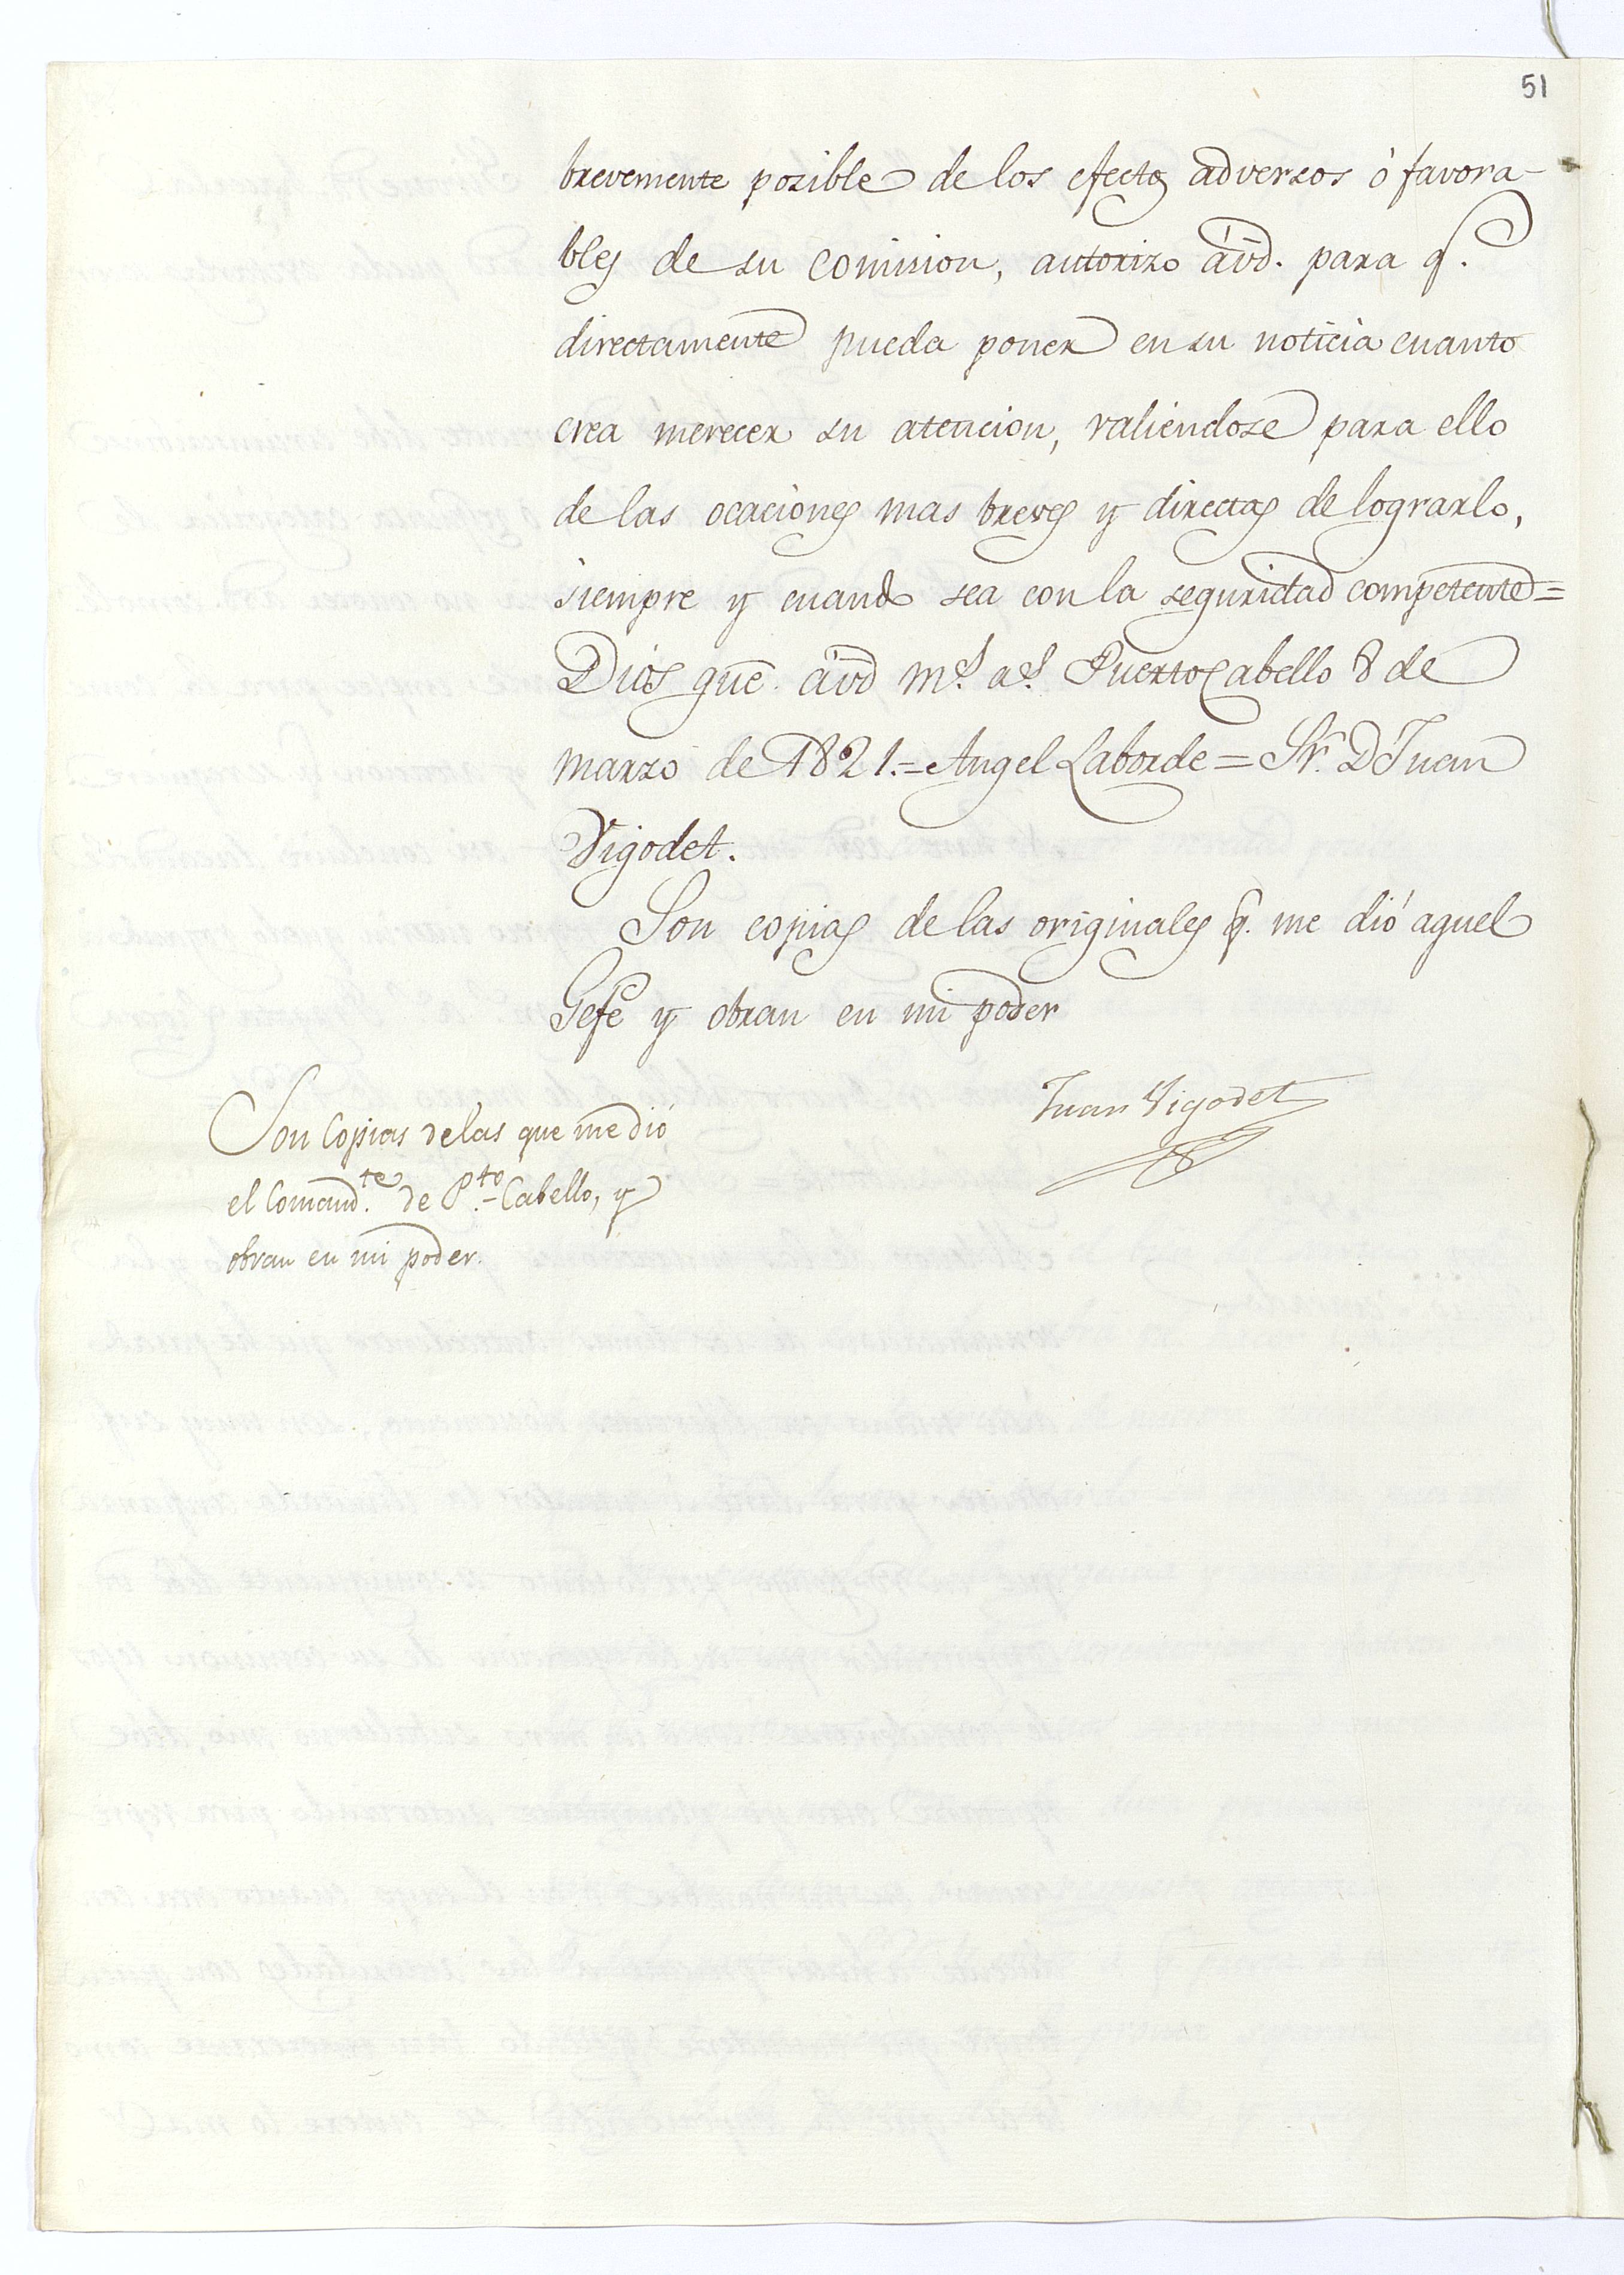 51
brevemente pozible de los efectos adversos ó favora-
bles de su comision, autorizo ávd. para q.e
directamente pueda poner en su noticia cuanto
crea merecer su atencion, valiendose para ello
de las ocaciones mas breves y directas de lograrlo,
siempre y cuando sea con la seguridad competente=
Dios gue. ávd m.s a.s Puerto Cabello 8 de
marzo de 1821.= Angel Laborde = Sr. D Juan
Vigodet.
Son copias de las originales q. me dió aquel
Gefe y obran en mi poder
Juan Vigodet
Son Copias delas que me dió
el Comand.te de P.to-Cabello, y
obran en mi poder.